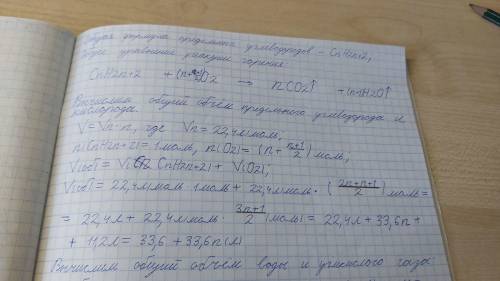 общая формула предельных углеводородов - CnH2n+2,
общее уравнение реакции горения:
CnH2n+2 + (n+ )O2 → nCO2↑ +(n+1)H2O↑
Вычислим общий объем предельного углеводорода и
кислорода.
V=Vn·n, где Vn=22,4л/моль,
n(CnH2n+2)=1моль, n(O2)=(n+\frac{n+1}{2})моль,
V(CnH2n+2)+V(O2);
22,4л/моль·1моль+22,4л/моль·(\frac{2n+n+1}{2})моль=
=22,4л+22,4л/моль·\frac{3n+1}{2}(моль)=22,4л+33,6n+
+11,2л=33,6+33,6n(л)
Вычислим общий объем воды и углекислого газа